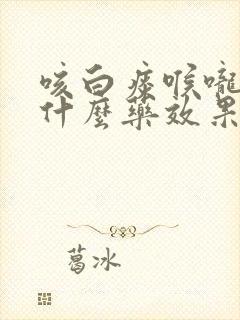 咳白痰喉嚨
什麼藥效果
葛冰